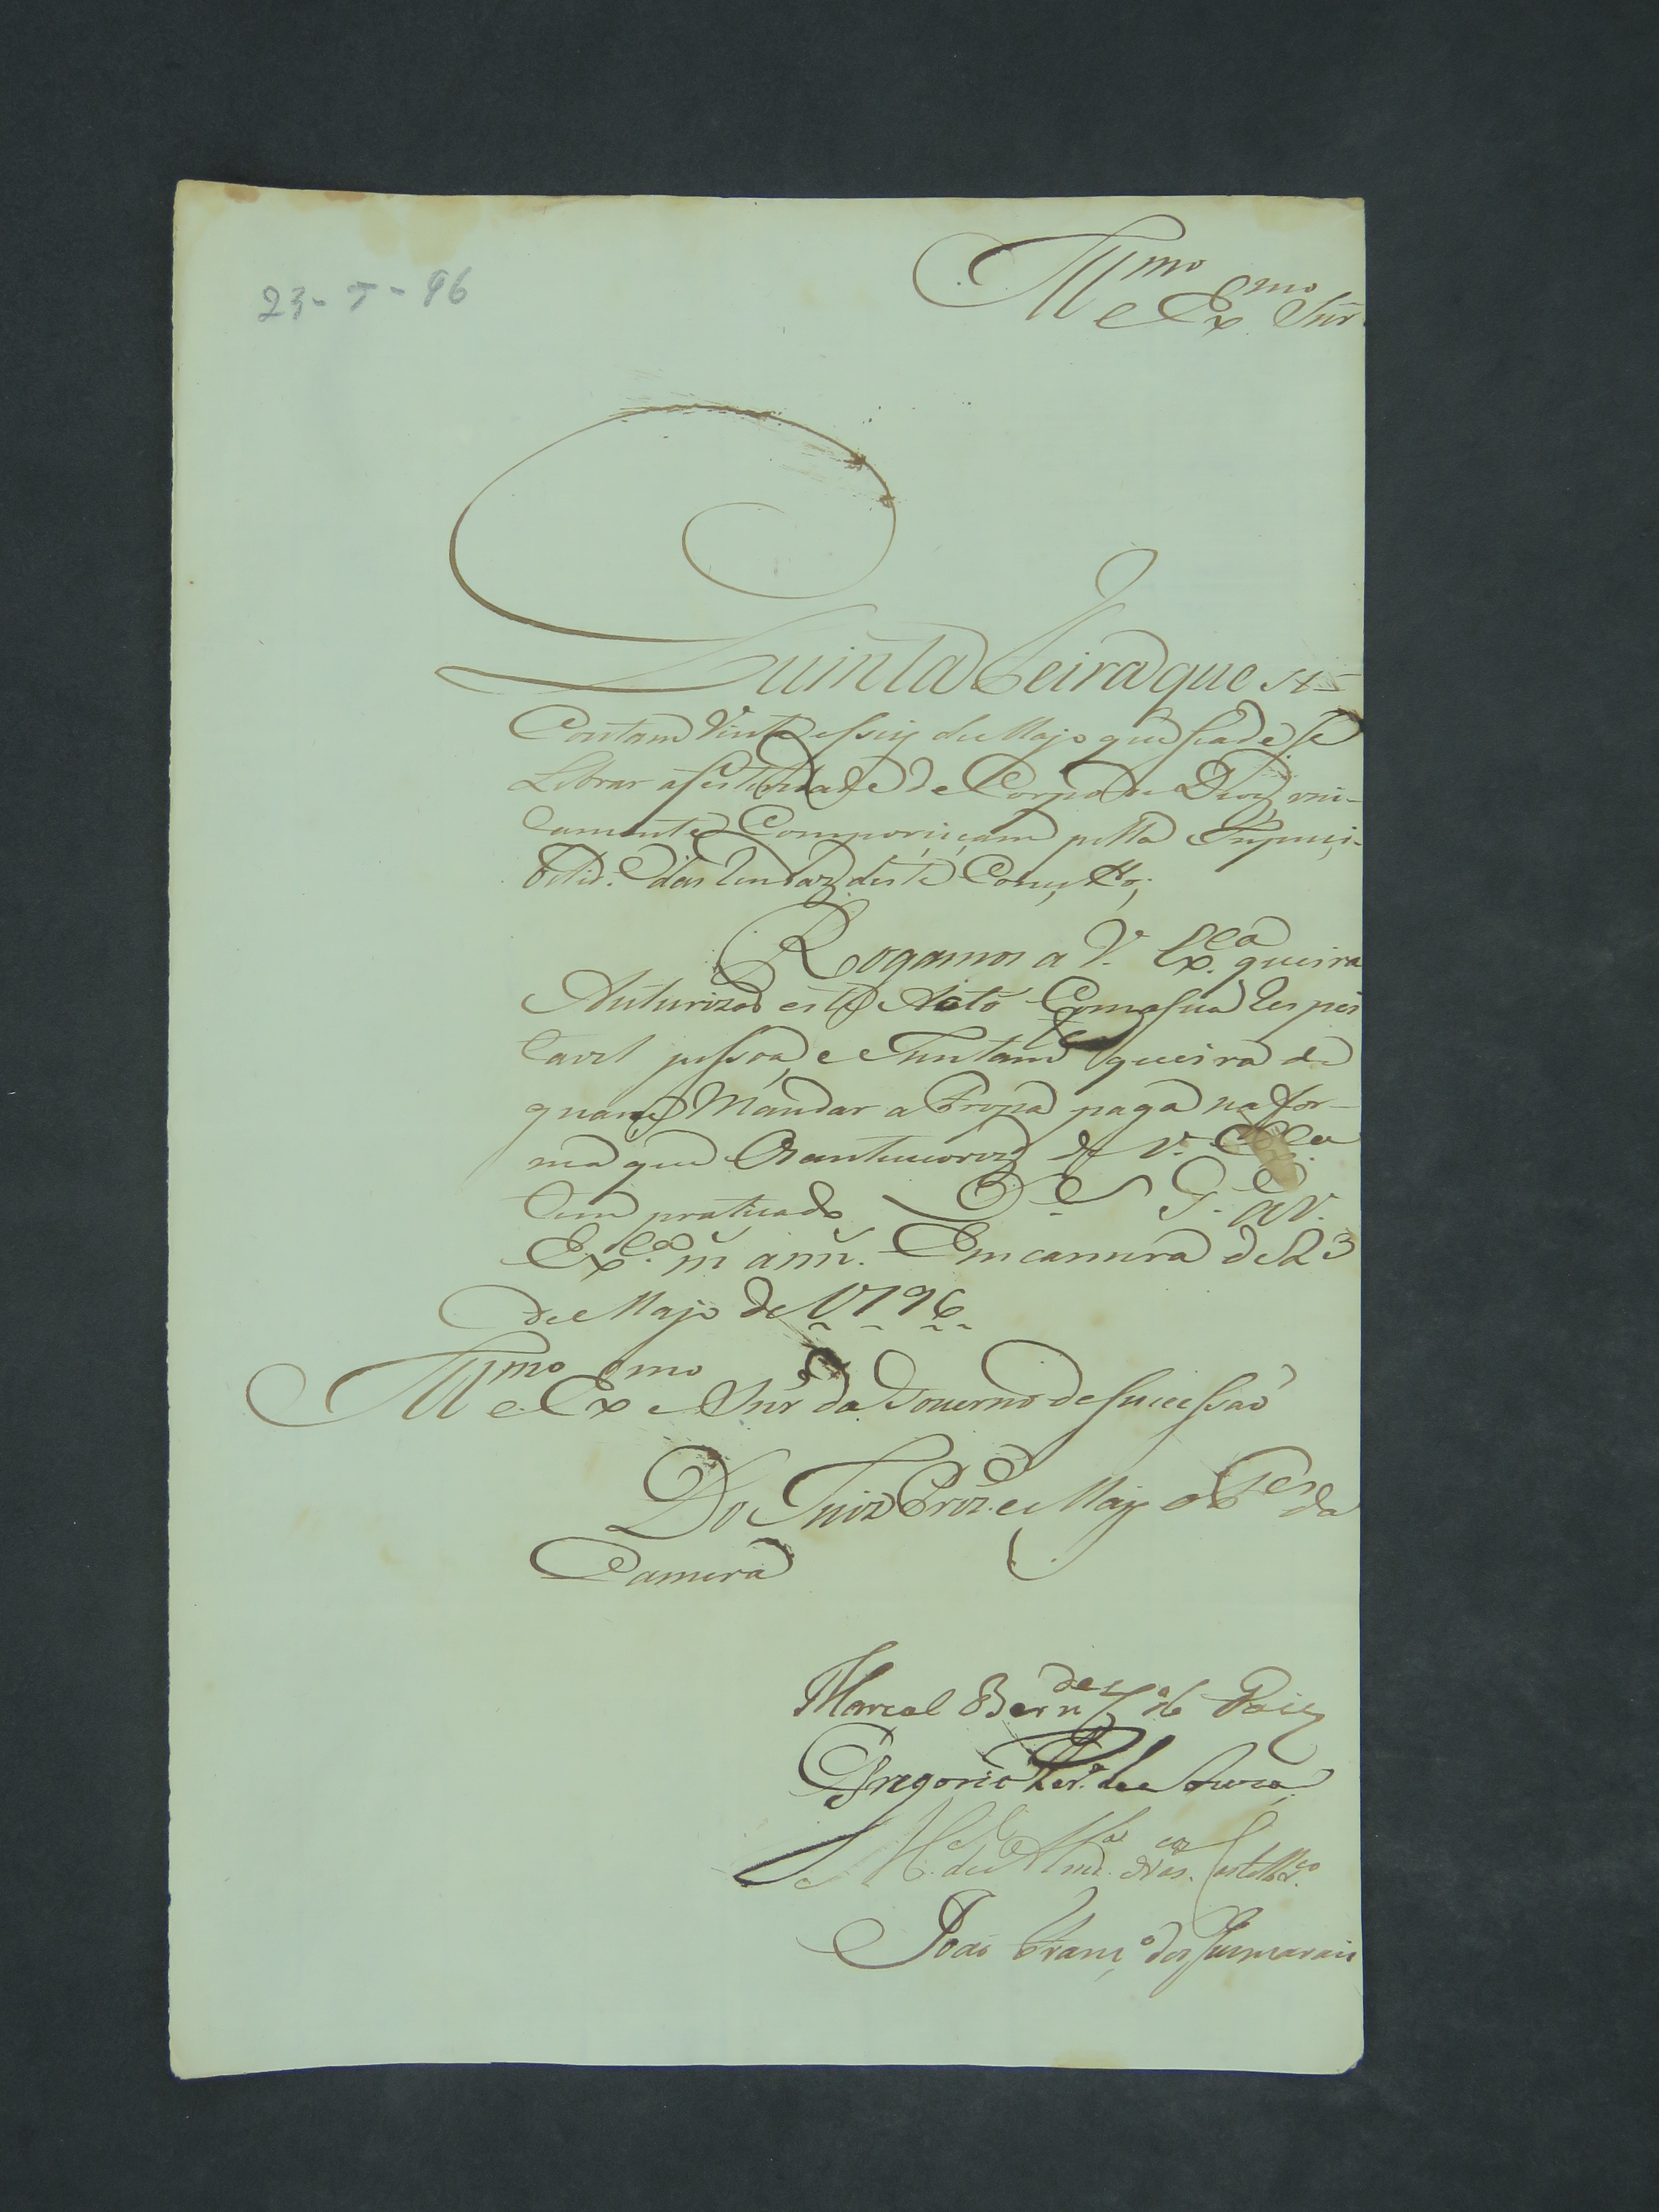 23-5-96
Ill^mo
e Ex^mo Snr
Quinta Feira que se
Contam Vinte esseis de Majo que seade se
Lebrar afestividade de Corpo de Deos, uni-
camente Compoziçam pella Inpuci-
belid.^e das Rendas deste Conc,^lho;
Rogamos a V. Ex^cia queira
Auturizar este Acto Comasua Respei
tavel pessoa, e Juntam^e queira de
quane Mandar a Tropa paga na for-
ma que Os antecesores de V. Ex^cia
tem praticado D.^s G.^e a V.
Ex^cia m^s ann^s. Em camera de 23
de Majo de 1796
Ill^mo e Ex^mo Snr^s do Governo de sucessão
Do Juiz Prez.^e e Mais Off^es da
Camera
Marcal Bern^des de
Gregorio Per.^a de Souza
João Fran,^co dos Guimarais